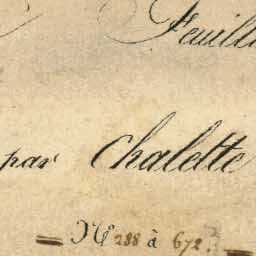 Feuill
par Chalette
= N° 288 à 672. =